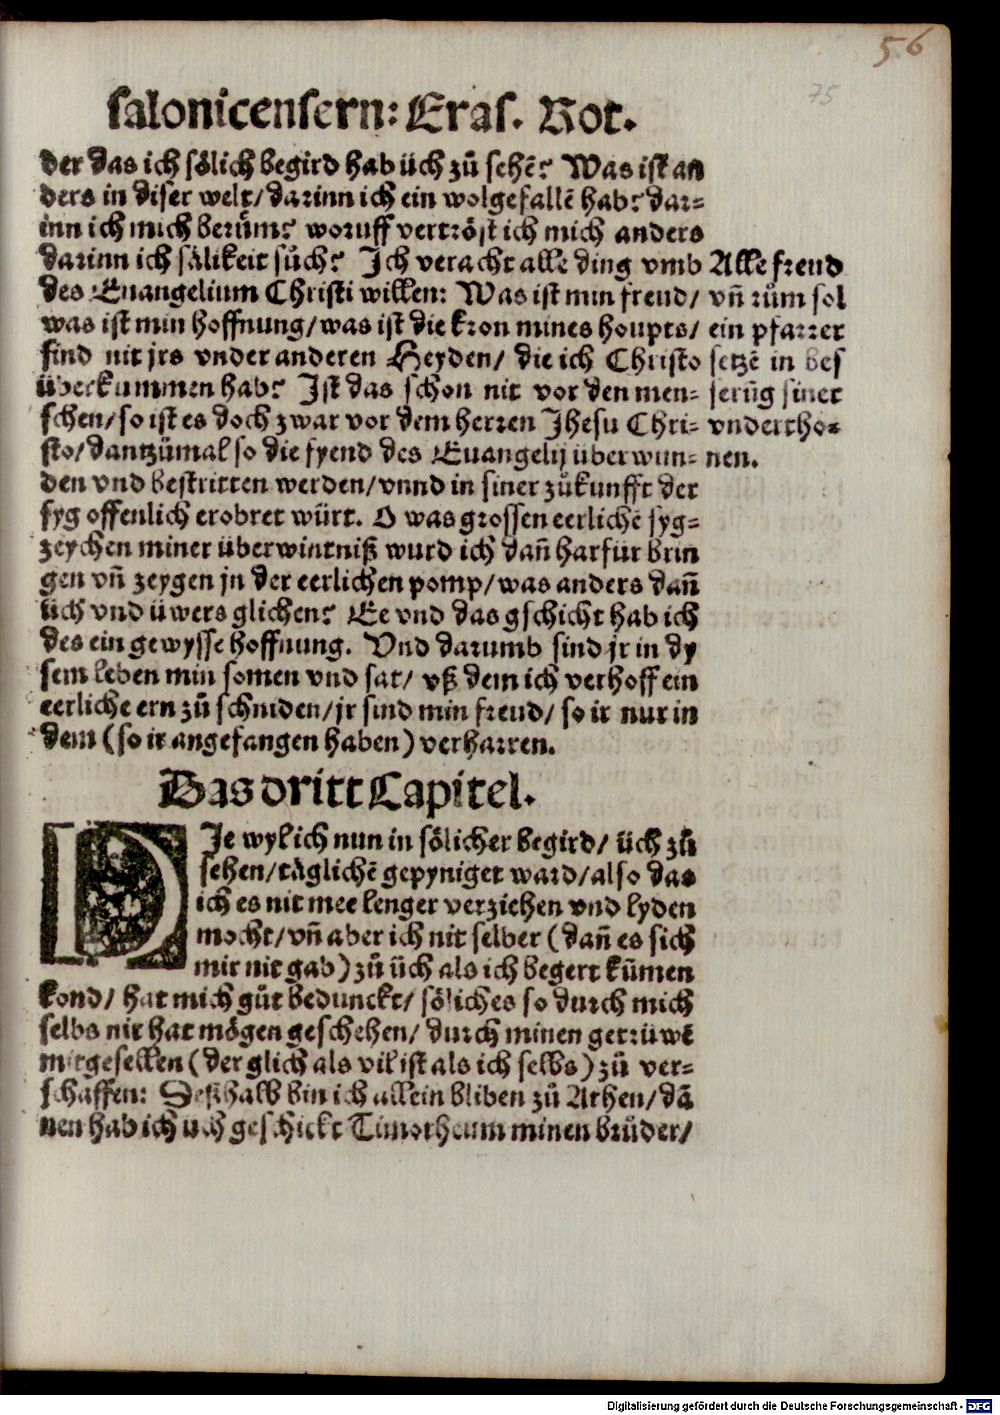 56
75
salonicensern: Eras. Rot.
der das ich sölich begird hab üch zů sehē? Was ist an
ders in diser welt/ darinn ich ein wolgefallē hab? dar-
inn ich mich berům? woruff vertröst ich mich anders
darinn ich sälikeit sůch? Ich veracht alle ding vmb
des Euangelium Christi willen: Was ist min freud/
was ist min hoffnung/ was ist die kron mines houpts/
sind nit jrs vnder anderen Heyden/ die ich Christo
überkummen hab? Ist das schon nit vor den men-
schen/ so ist es doch zwar vor dem herren Jhesu Chri-
sto/ dantzümal so die fyend des Euangelij überwun-
den vnd bestritten werden/ vnnd in siner zůkunfft der
syg offenlich erobret würt. O was grossen eerlichē syg-
zeychen miner überwintniß wurd ich dañ harfür brin
gen vñ zeygen jn der eerlichen pomp/ was anders dañ
üch vnd üwers glichen? Ee vnd das gschicht hab ich
des ein gewysse hoffnung. Vnd darumb sind jr in dy
sem leben min somen vnd sat/ vß dem ich verhoff ein
eerliche ern zů schniden/ jr sind min freud/ so ir nur in
dem (so ir angefangen haben) verharren.
Alle freud
vñ rům sol
ein pfarrer
setzē in bes
serũg siner
vndertho-
nen.
Das dritt Capitel.
DJe wyl ich nun in sölicher begird/ üch zů
sehen/ täglichē gepyniget ward/ also das
ich es nit mee lenger verziehen vnd lyden
mocht/ vñ aber ich nit selber (dañ es sich
mir nit gab) zů üch als ich begert kũmen
kond/ hat mich gůt bedunckt/ söliches so durch mich
selbs nit hat mögen geschehen/ durch minen getrüwē
mitgesellen (der glich als vil ist als ich selbs) zů ver-
schaffen: Deßhalb bin ich allein bliben zů Athen/ dā
nen hab ich üch geschickt Timotheum minen brůder/
Digitalisierung gefördert durch die Deutsche Forschungsgemeinschaft - DFG